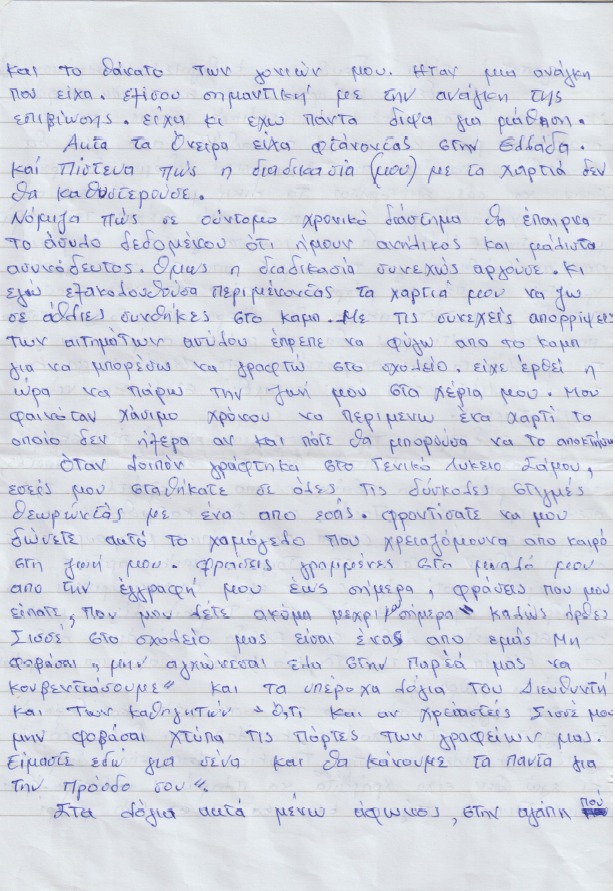 και το θάνατο των γονιών μου. Ηταν μια ανάγκη
που είχα. εξίσου σημαντική με την ανάγκη της
επιβίωσης. είχα κι έχω πάντα διψα για μάθηση.
Αυτα τα Όνειρα είχα φτάνοντας στην Ελλάδα.
και Πίστευα πώς η διαδικασία (μου) με τα χαρτιά δεν
θα καθυστερούσε.
Νόμιζα πώς σε σύντομο χρονικό διάστημα θα έπαιρνα
το άσυλο δεδομένου ότι ήμουν ανήλικος και μάλιστα
ασυνόδευτος. Όμως η διαδικασία συνεχώς αργούσε. Κι
εγώ εξακολουθούσα περιμένοντας τα χαρτιά μου να ζω
σε άθλιες συνθήκες στο καμπ. Με τις συνεχείς απορρίψεις
των αιτημάτων ασύλου έπρεπε να φύγω απο το καμπ
για να μπορέσω να γραφτώ στο σχολείο. είχε έρθει η
ώρα να πάρω την ζωή μου στα χέρια μου. Μου
φαινόταν χάσιμο χρόνου να περιμενω ένα χαρτί το
οποίο δεν ήξερα αν και πότε θα μπορούσα να το αποκτήσω
Όταν λοιπόν γράφτηκα στο Γενικό Λυκειο Σάμου,
εσείς μου σταθήκατε σε όλες τις δύσκολες στιγμές
θεωρώντάς με ένα απο εσάς. φροντίσατε να μου
δώσετε αυτό το χαμόγελο που χρειαζόμουνα απο καιρό
στη ζωή μου. φράσεις γραμμένες στο μυαλό μου
απο την έγγραφή μου έως σήμερα, φράσεις που μου
είπατε, που μου λέτε ακόμα μεχρι σήμερα " καλώς ήρθες
Σισσέ στο σχολείο μας είσαι ένας απο εμάς Μη
φοβάσαι, μην αγχώνεσαι έλα στην παρέα μας να
κουβεντιάσουμε" και τα υπέροχα λόγια του Διευθυντή
και των καθηγητών " Ό,τι και αν χρειαστείς Σισσέ μου
μην φοβάσαι χτύπα τις πόρτες των γραφείων μας.
Είμαστε εδώ για σένα και θα κάνουμε τα παντα για
την πρόοδο σου".
Στα λόγια αυτά μένω άφωνος, στην αγάπη πού